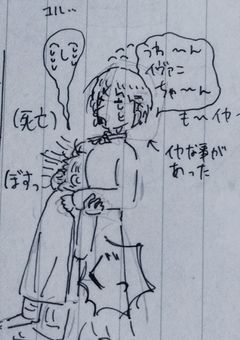 ユル…
うわ〜ん
イヴァニ
ちゃ〜ん
も〜イヤ
(死亡)
ぼすっ
イヤな事が
あった
ぐ